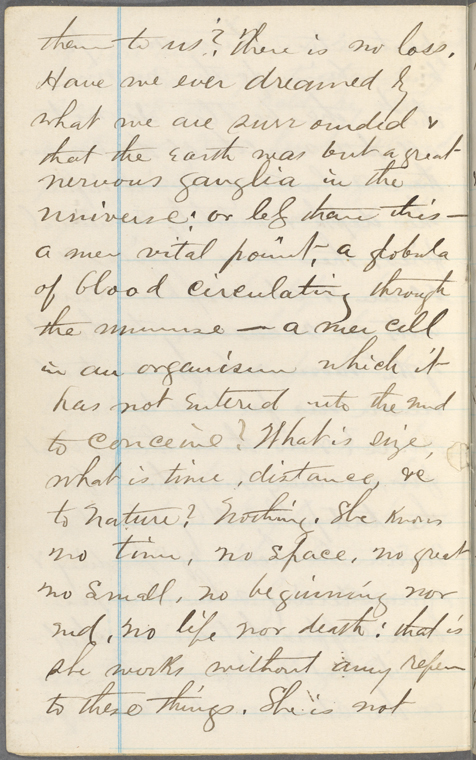 them to us? There is no loss.
Have we ever dreamed by
what we are surrounded &
that the Earth was but a great
nervous ganglia in the
universe; or less than this —
a mere vital point, a globula
of blood circulating through
the universe — a mere cell
in an organism which it
has not entered into the mind
to conceive? What is size,
what is time, distance, &c
to Nature? Nothing. She knows
no time, no space, no great
no small, no beginning nor
end, no life nor death: that is
she works without any refern
to these things. She is not